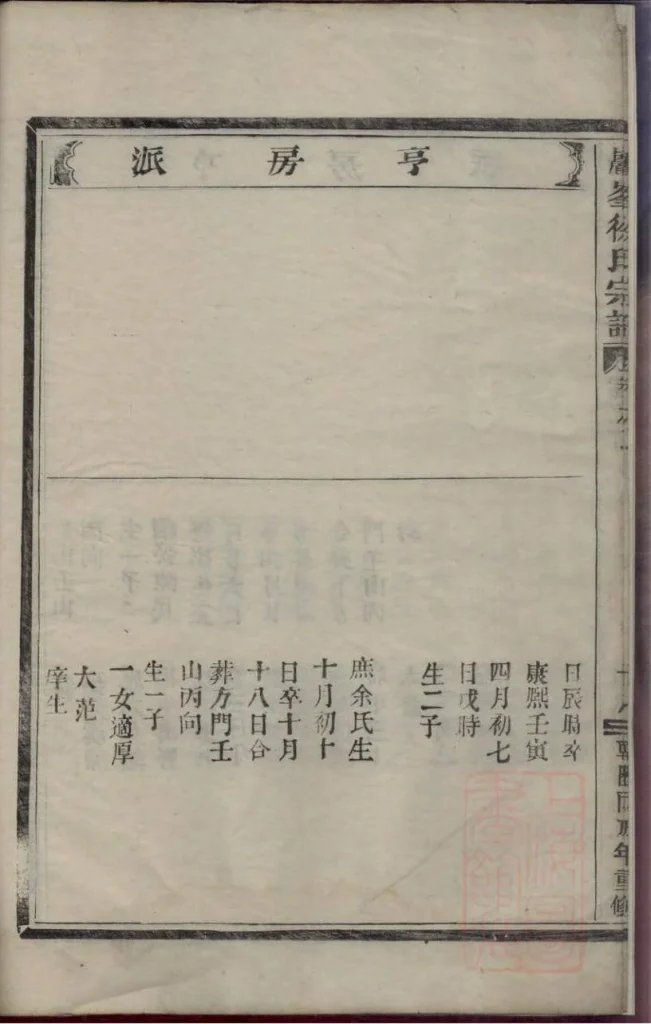 亨房派
日辰時卒
康熙壬寅
四月初七
日戌時
生二子
庶余氏生
十月初十
日卒十月
十八日合
葬方門壬
山丙向
生一子
一女適厚
大范
庠生
徐氏宗譜
年重修